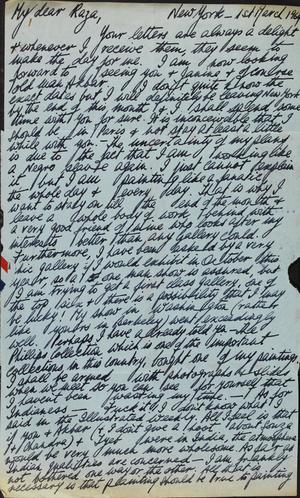 My dear Raza, New York – 1st March 196
Your letters are always a delight
& whenever I receive them they seem to
make the day for me. I am now looking
forward to seeing you & Janine & of course
old man Akbar. I don't quite know the
exact dates but I will definitely be leaving New York
by the end of this month & shall spend some
time with you for sure. It is inconceivable that I
should be in Paris & not stay at least a little
while with you. – The uncertainty of my plans
is due to the fact that I am working like
a Negro galante again. I just cannot explain
it but I am painting like a fanatic,
the whole day & every day. That is why I
want to stay on till the end of the month &
leave a whole body of work behind with
a very good friend of mine who looks after my
interests better than any gallery could.
Furthermore, I have been asked by a very
chic gallery if I would exhibit in October this
year, so a one man show is assured, but
I am trying to get a first class gallery, one of
the top five & there is a possibility that I may
be lucky! My show in Washington rather
like yours in Berkeley went exceedingly
well. Perhaps I have already told you – the
Phillips Collection which is one of the important
collections in this country, bought one of my paintings.
I shall be armed with photographs & slides
when we meet so you can see for yourself that
I haven't been wasting my time. – As for
Indianess – Fuck it! I don't know what I
said in the Illustrated Weekly. All I know is that
if you & Akbar (I don't give a hoot about Souza
or Chavda) & I yet were in India, the atmosphere
would be very much more wholesome. As far as
Indian qualities are concerned I am frankly
not bothered one way or the other. All that is
necessary is that painting should be true to painting